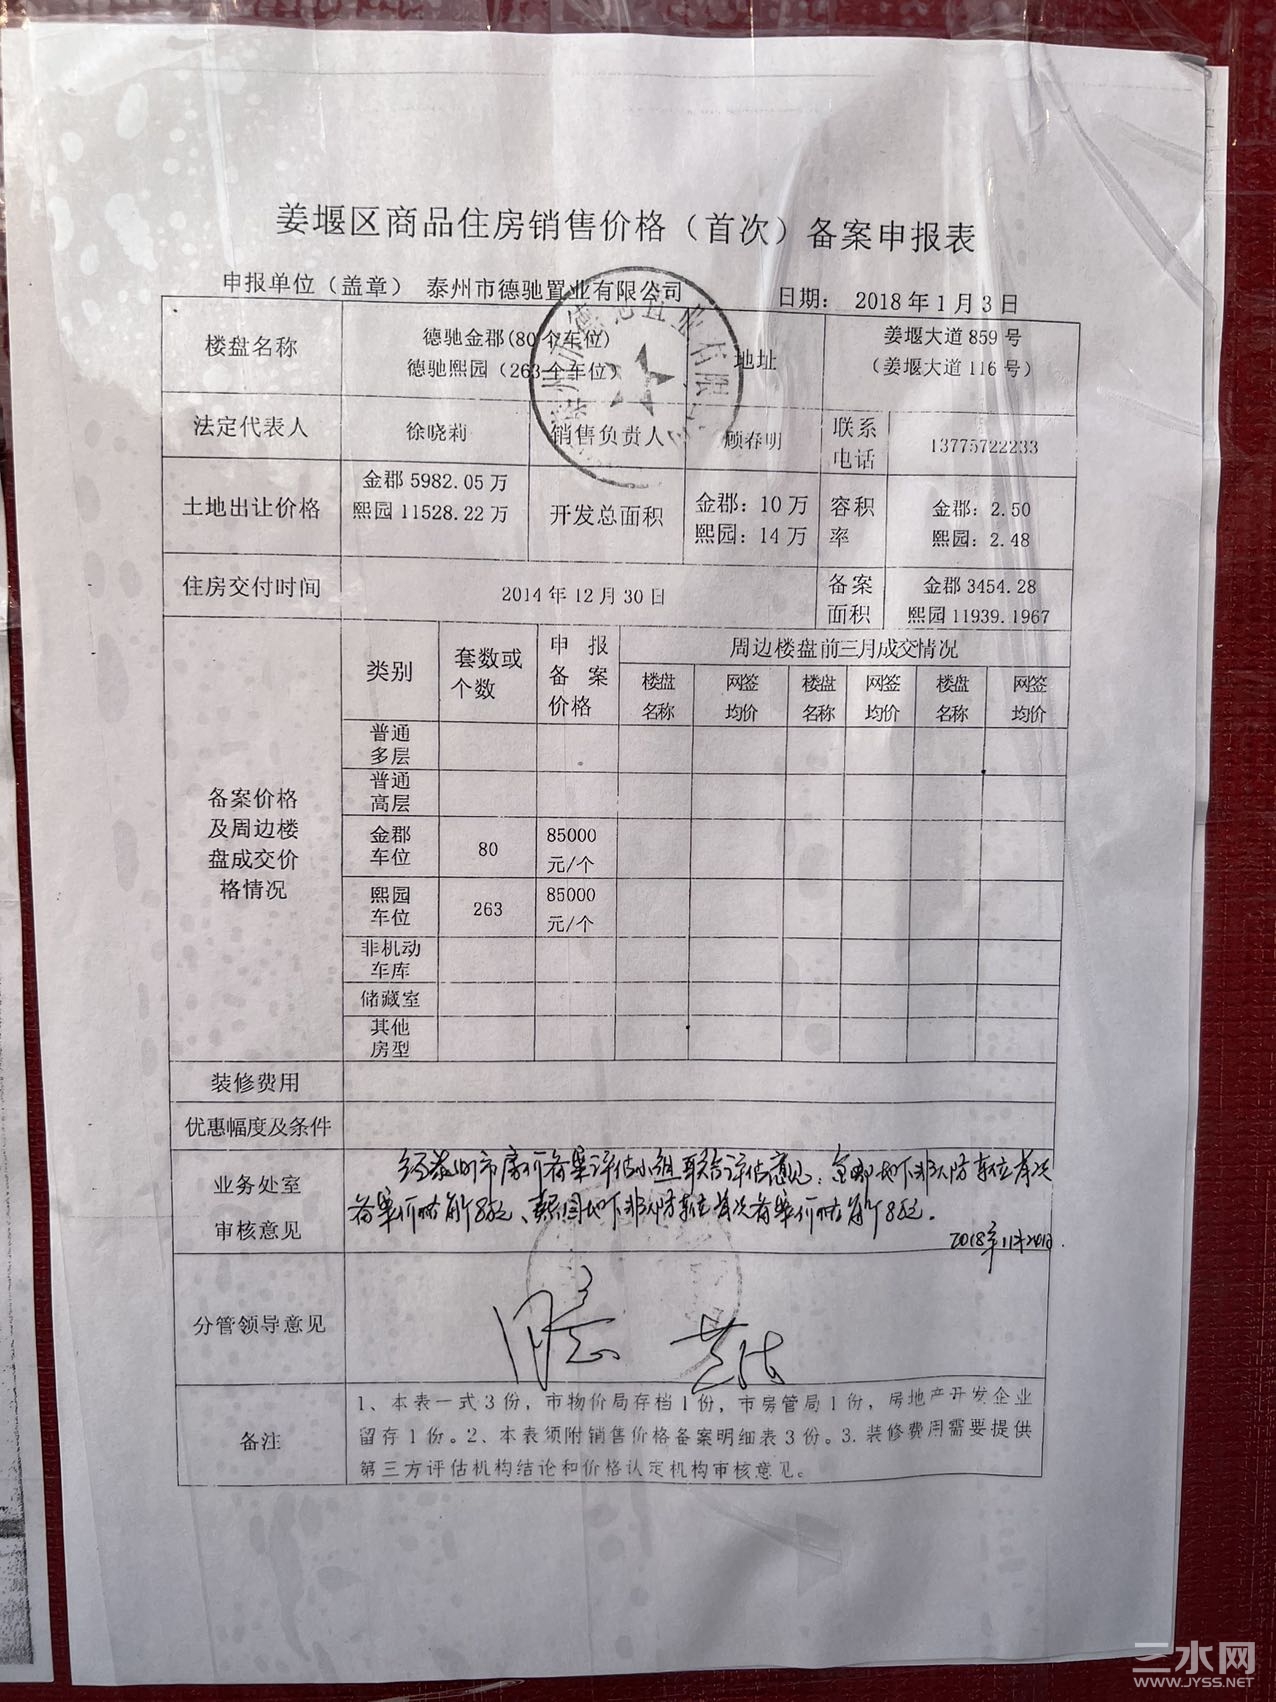 姜堰区商品住房销售价格（首次）备案申报表
申报单位（盖章） 泰州市德驰置业有限公司 日期： 2018年1月3日
楼盘名称
德驰金郡(80个车位)
德驰熙园（263个车位）
地址
姜堰大道859号
（姜堰大道116号）
法定代表人 徐晓莉 销售负责人 顾春明
联系
电话
13775722233
土地出让价格
金郡5982.05万
熙园11528.22万
开发总面积
金郡：10万
熙园：14万
容积
率
金郡：2.50
熙园：2.48
住房交付时间 2014年12月30日
备案
面积
金郡3454.28
熙园11939.1967
备案价格
及周边楼
盘成交价
格情况
类别
套数或
个数
申报
备案
价格
周边楼盘前三月成交情况
楼盘
名称
网签
均价
楼盘
名称
网签
均价
楼盘
名称
网签
均价
普通
多层
普通
高层
金郡
车位
80
85000
元/个
熙园
车位
263
85000
元/个
非机动
车库
储藏室
其他
房型
装修费用
优惠幅度及条件
业务处室
审核意见
经泰州市房价备案评估小组联合评估意见：金郡地下非人防车位首次
备案价格 熙园地下非人防车位首次备案价格
2018年11月20日.
分管领导意见
备注
1、本表一式3份，市物价局存档1份，市房管局1份，房地产开发企业
留存1份。2、本表须附销售价格备案明细表3份。3.装修费用需要提供
第三方评估机构结论和价格认定机构审核意见。
三水网
WWW.JYSS.NET